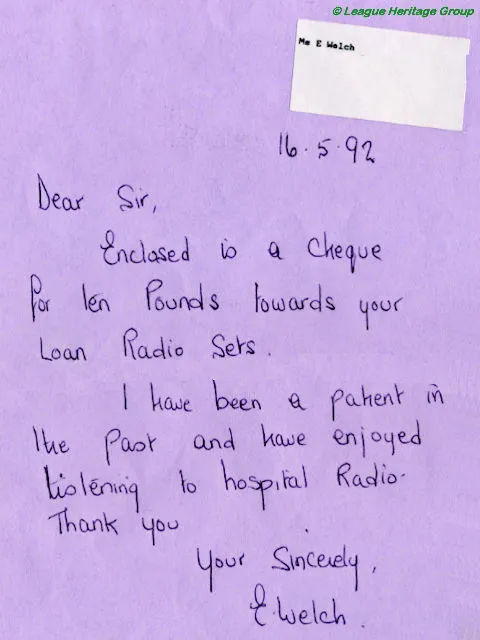 © League Heritage Group
Ms E Welch
16.5.92
Dear Sir,
Enclosed is a cheque
for ten Pounds towards your
Loan Radio Sets.
I have been a patient in
the past and have enjoyed
listening to hospital Radio.
Thank you
Your Sincerely,
E. Welch.